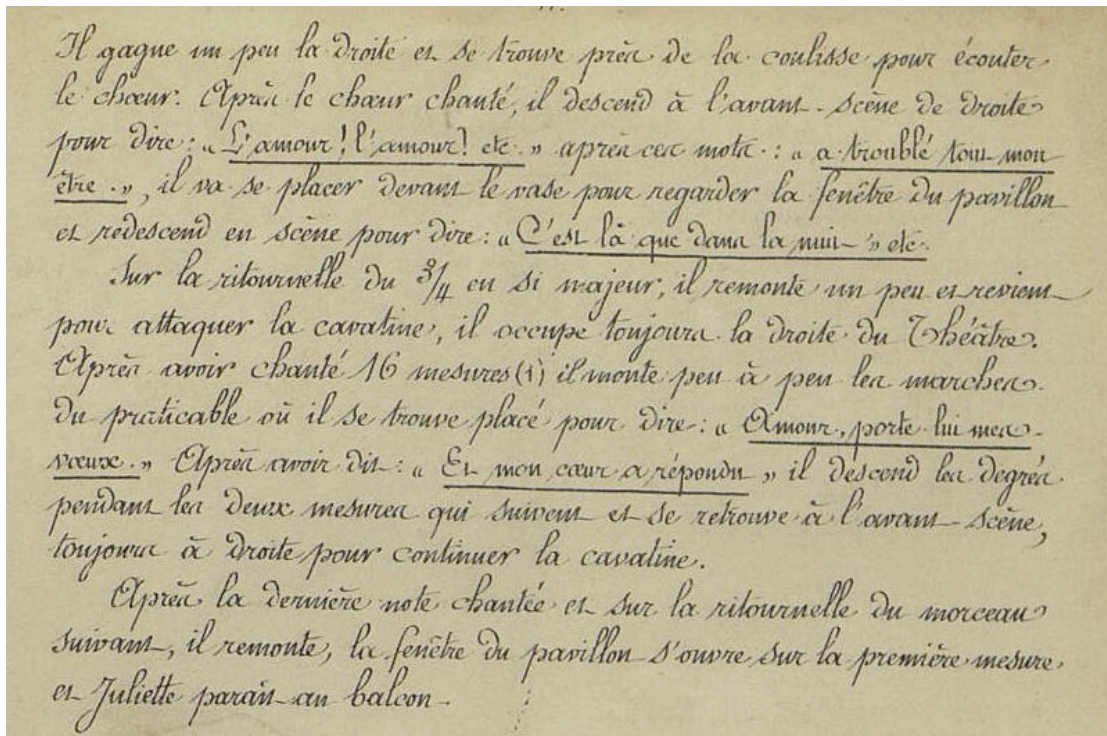 Il gagne un peu la droite et se trouve près de la coulisse pour écouter
le chœur. Après le chœur chanté, il descend à l'avant-scène de droite
pour dire : « L'amour ! l'amour ! etc. » après ces mots : « a troublé tout mon
être. », il va se placer devant le vase pour regarder la fenêtre du pavillon
et redescend en scène pour dire : « C'est là que dans la nuit » etc.
Sur la ritournelle du 3/4 en si majeur, il remonte un peu et revient
pour attaquer la cavatine, il occupe toujours la droite du Théâtre.
Après avoir chanté 16 mesures (1) il monte peu à peu les marches
du praticable où il se trouve placé pour dire : « Amour, porte lui mes
vœux. » Après avoir dit : « Et mon cœur a répondu » il descend les degrés
pendant les deux mesures qui suivent et se retrouve à l'avant-scène,
toujours à droite pour continuer la cavatine.
Après la dernière note chantée et sur la ritournelle du morceau
suivant, il remonte, la fenêtre du pavillon s'ouvre sur la première mesure
et Juliette paraît au balcon.